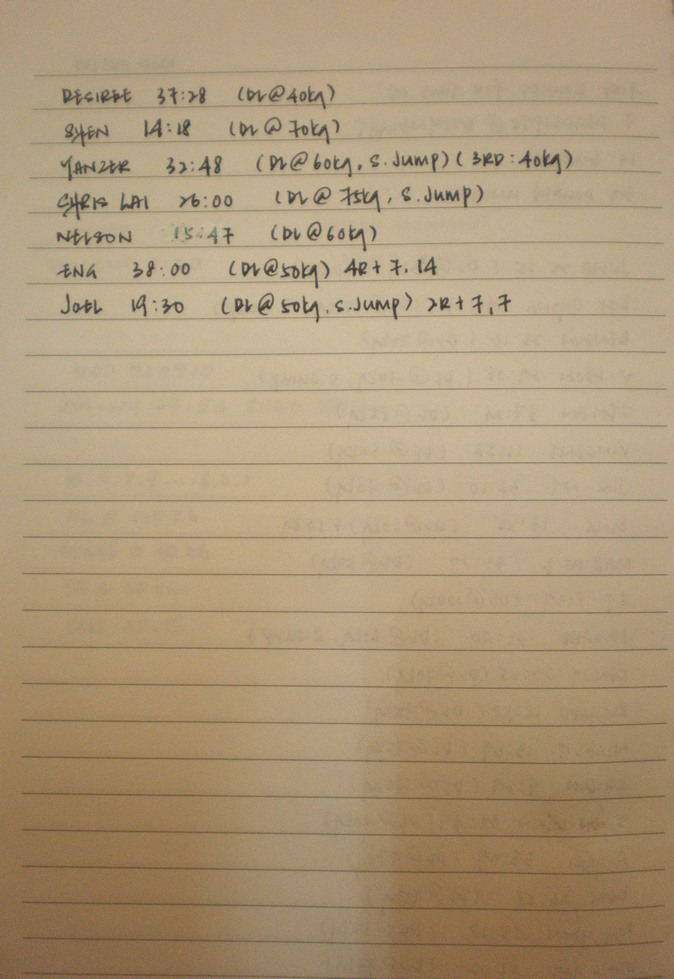 DESIREE 37:28 (DL@40kg)
SHEN 14:18 (DL@70kg)
YANZER 32:48 (DL@60kg, S.Jump) (3RD:40kg)
CHRIS LAI 26:00 (DL@75kg, S.Jump)
NELSON 15:47 (DL@60kg)
ENG 38:00 (DL@50kg) 4R+7.14
JOEL 19:30 (DL@50kg, S.Jump) 2R+7,7